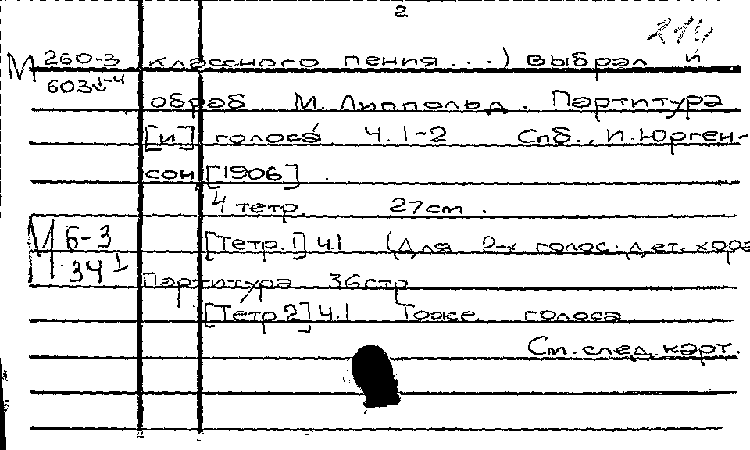 2
214
М 260-3 классного пения...) выбрал и
603
обраб М. Липпольд. Партитура
[и] голоса́ Ч.1-2 Спб., И. Юрген-
сон [1906].
4 тетр. 27см.
М Б-3 [Тетр.1] ч.1 (Для 2-х голос. дет. хора
34 1 Партитура 36стр
[Тетр 2] ч.1 Тоже голоса
См. след. карт.